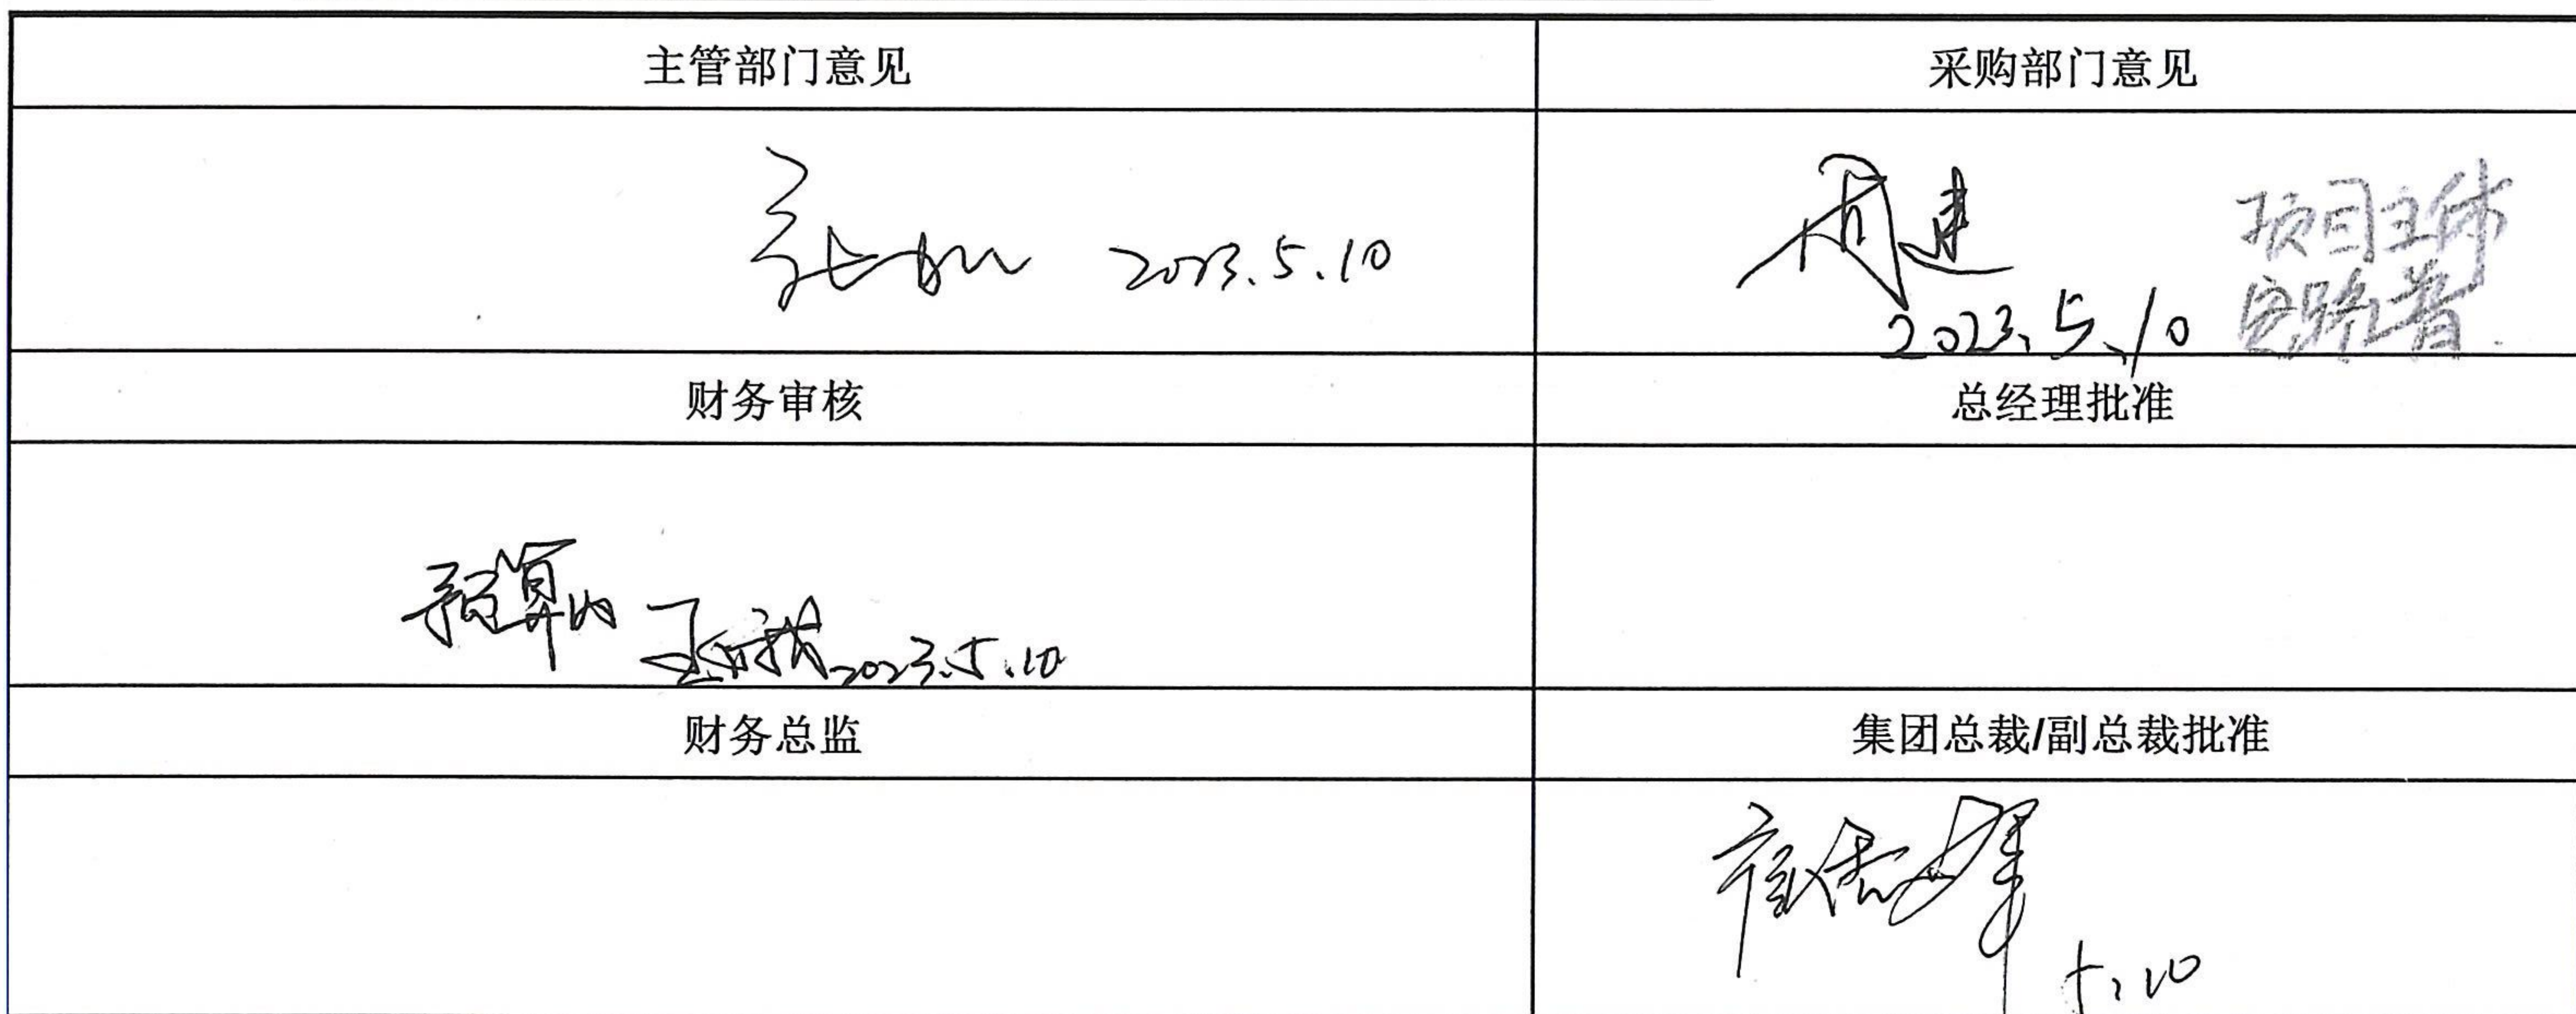 主管部门意见
采购部门意见
2023.5.10
周建
2023.5.10
项目主体
安路普
财务审核
总经理批准
预算内
2023.5.10
财务总监
集团总裁/副总裁批准
5.10